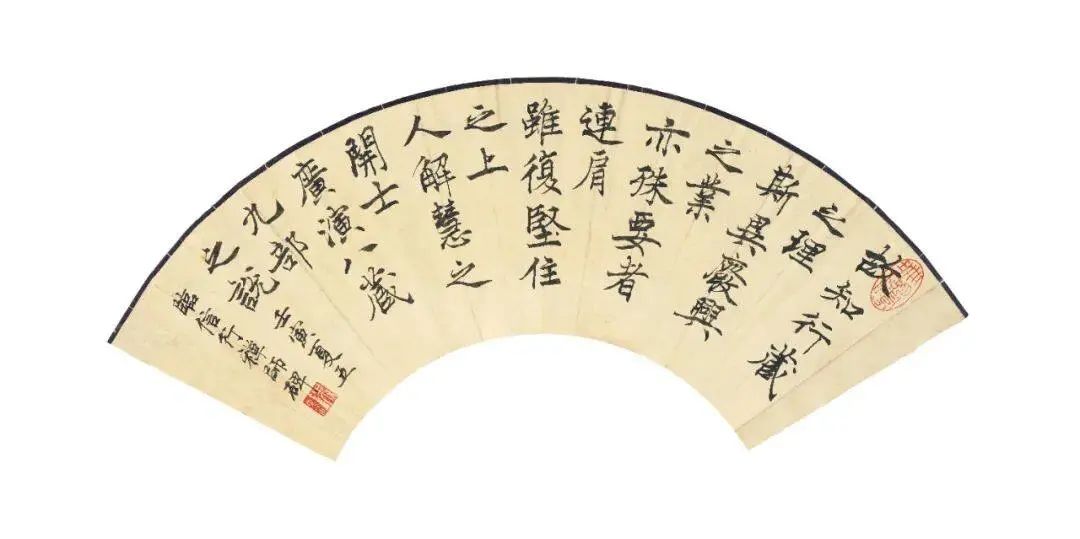 故知行藏
之理
斯異廢興
之業
亦殊要者
連肩
雖復堅住
之上
人解慧之
開士
廣演八藏
九部
之說 壬寅夏五
臨信行禪師碑